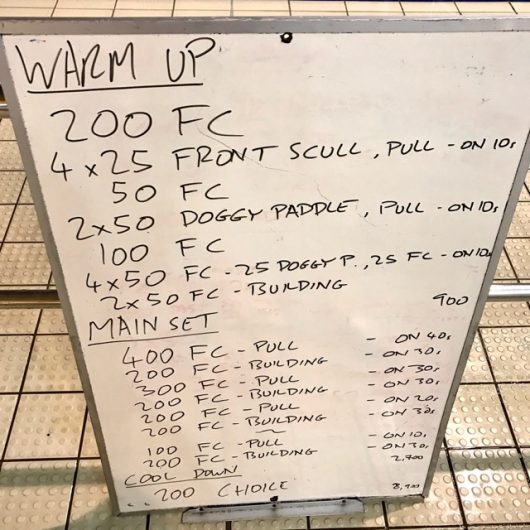 WARM UP
200 FC
4 x 25 FRONT SCULL, PULL - ON 10s
50 FC
2x50 DOGGY PADDLE, PULL - ON 10s
100 FC
4x50 FC - 25 DOGGY P., 25 FC - ON 10s
2x50 FC - BUILDING
900
MAIN SET
400 FC - PULL - ON 40s
200 FC - BUILDING - ON 30s
300 FC - PULL - ON 30s
200 FC - BUILDING - ON 30s
200 FC - PULL - ON 20s
200 FC - BUILDING - ON 30s
100 FC - PULL - ON 10s
200 FC - BUILDING - ON 30s
2,700
COOL DOWN
200 CHOICE